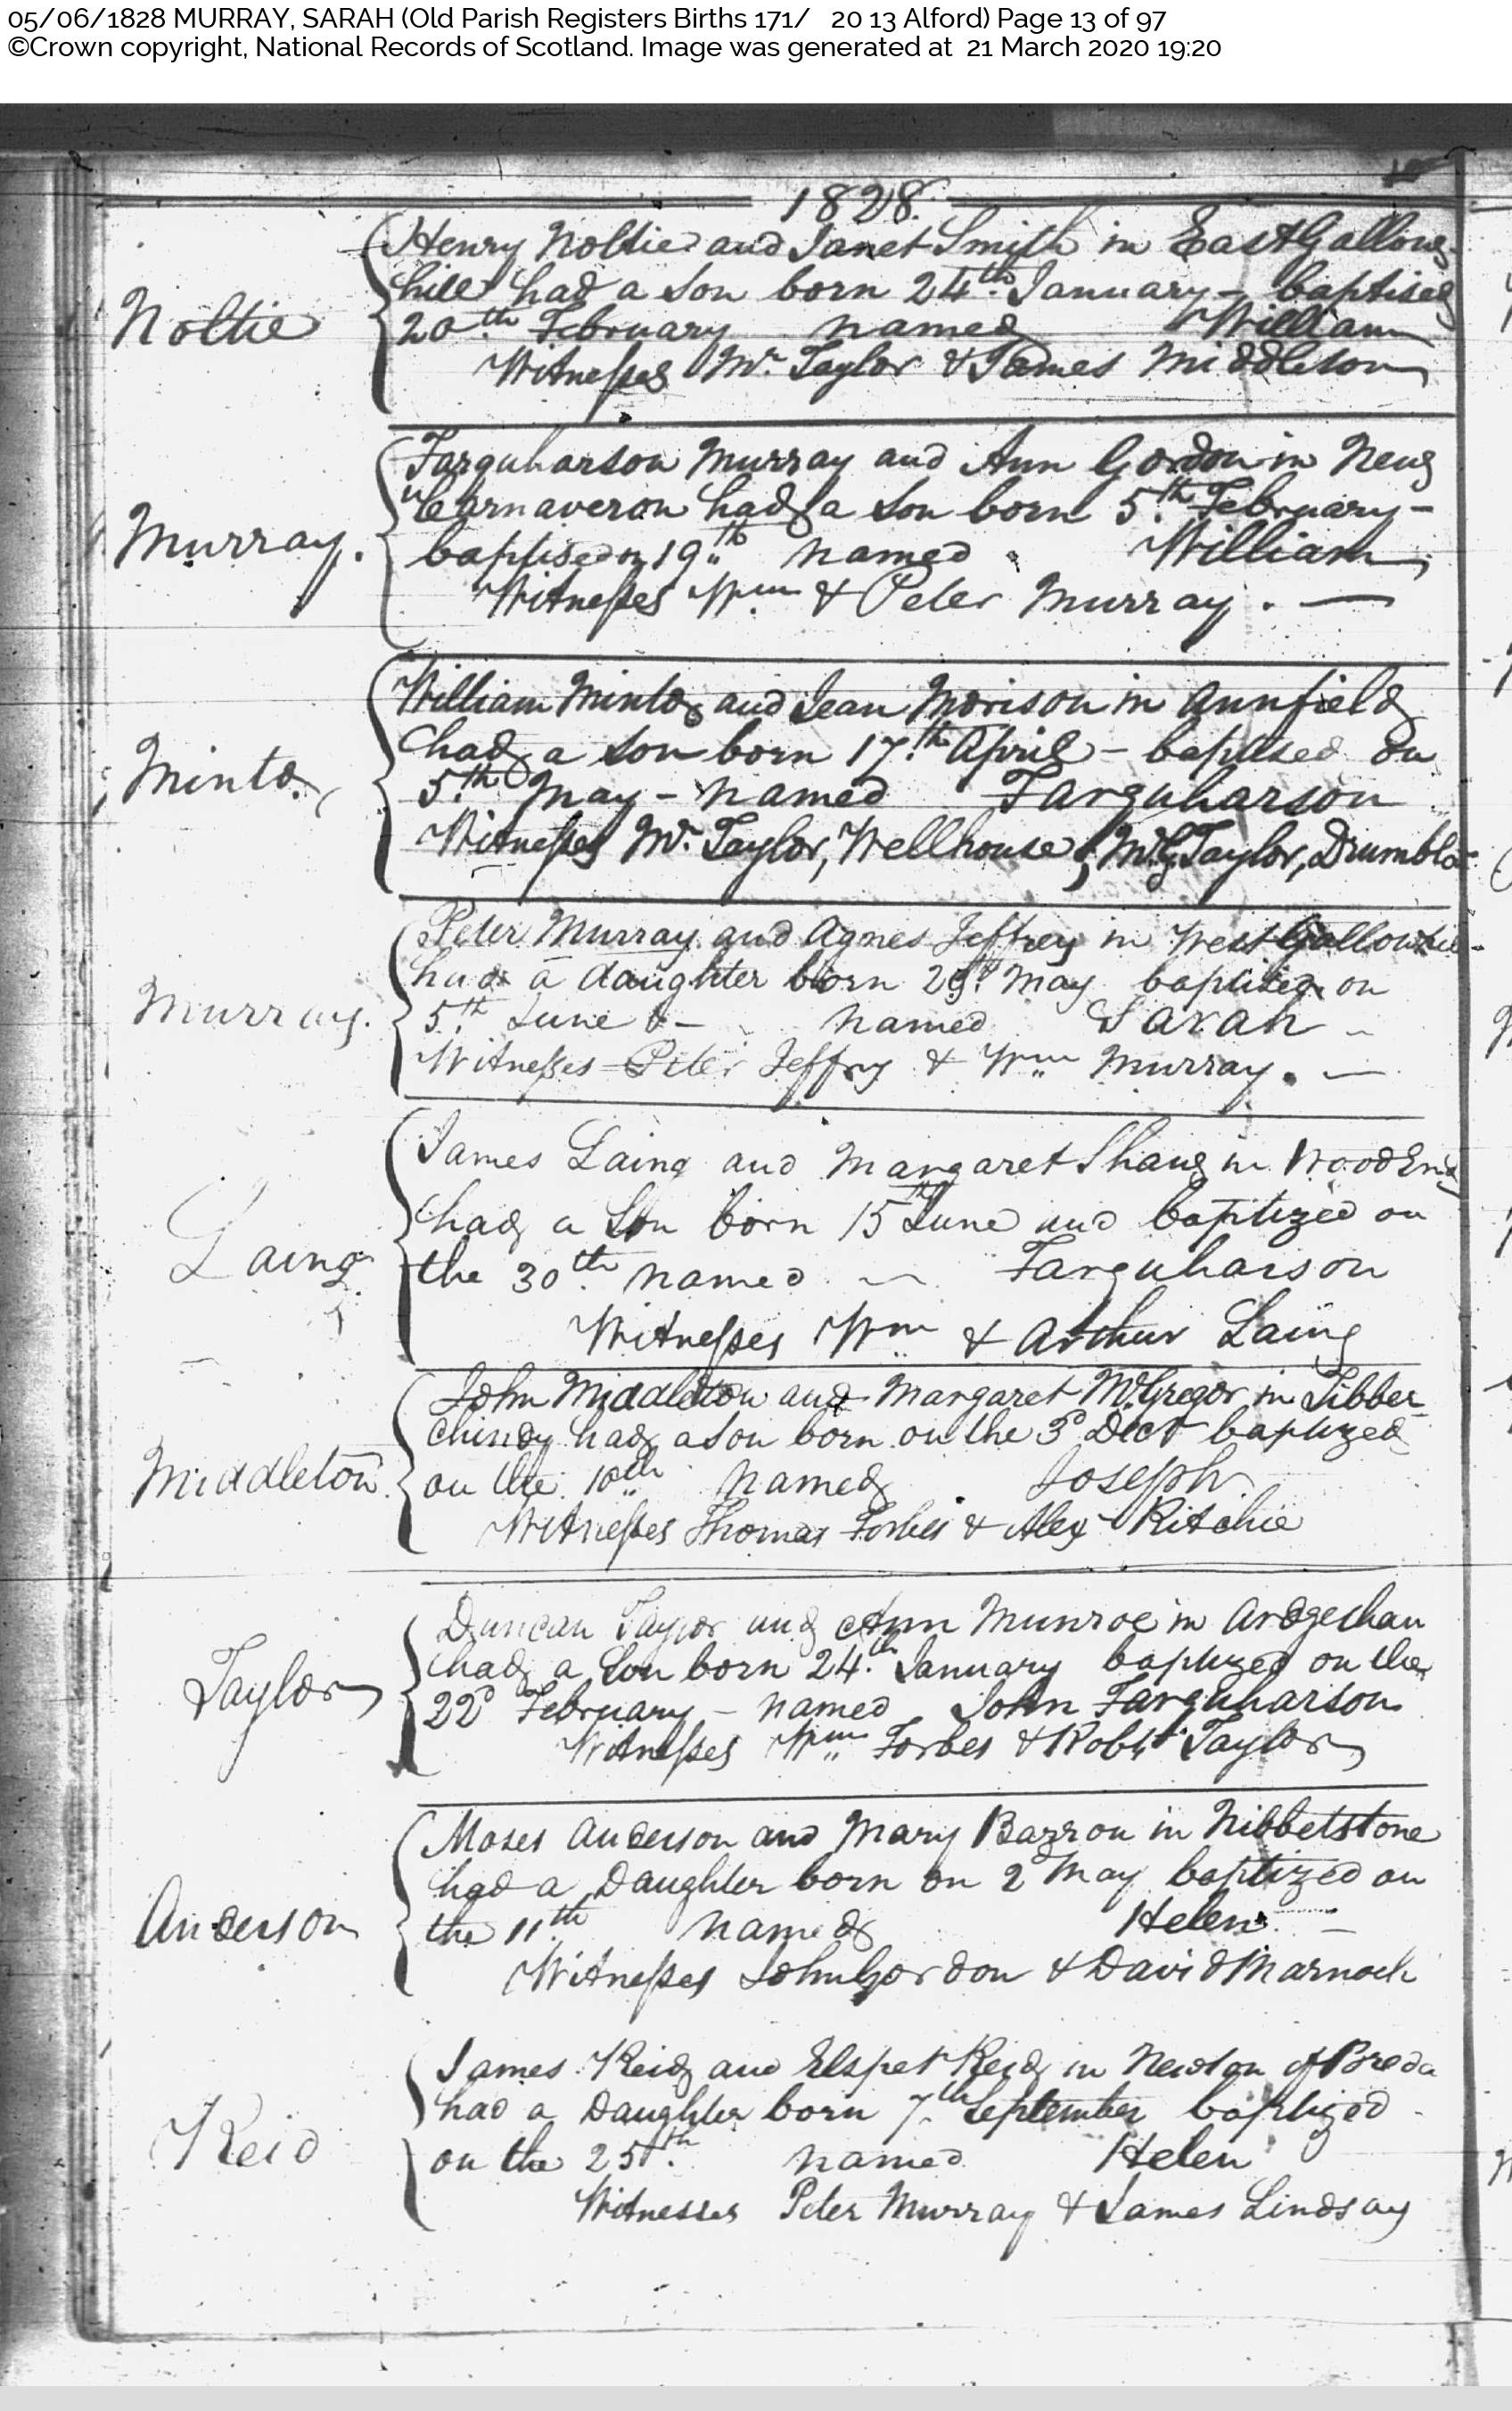 05/06/1828 MURRAY, SARAH (Old Parish Registers Births 171/ 20 13 Alford) Page 13 of 97
©Crown copyright, National Records of Scotland. Image was generated at 21 March 2020 19:20
1828.
Henry Noltie and Janet Smith in East Gallow-
Noltie
hill had a Son born 24th. January - baptised
20th February named William
Witnesses Mr. Taylor & James Middleton
Farquharson Murray and Ann Gordon in
Carnaveron had a Son born 5th. February -
Murray.
baptised 19th named William
Witnesses Wm & Peter Murray. —
William Minto and Jean Morison in Annfield
had a Son born 17th. April - baptised on
Minto.
5th. May - named Farquharson
Witnesses Mr. Taylor, Wellhouse, Taylor, Drumblair
Peter Murray and Agnes Jeffrey in West Gallowhill
had a daughter born 29th May baptised on
Murray.
5th. June named Sarah
Witnesses Peter Jeffry & Wm Murray. —
James Laing and Margaret Shaw in Wood End
had a Son born 15th June and baptized on
Laing
the 30th. named Farquharson
Witnesses Wm & Arthur Laing
John Middleton and Margaret McGregor in Tibber-
chindy had a Son born on the 3d Decr baptized
Middleton.
on the 10th named Joseph
Witnesses Thomas Forbes & Alexr Ritchie
Duncan Taylor and Ann Munroe in
had a Son born 24th. January baptized on the
Taylor
22d February - named John Farquharson
Witnesses Wm Forbes & Robt Taylor
Moses Anderson and Mary Barron in Nibbetstone
had a Daughter born on 2d May baptized on
Anderson
the 11th. named Helen
Witnesses John Gordon & David Marnoch
James Reid and Elspet Reid in Newton of Breda
had a Daughter born 7th September baptized
Reid
on the 25th. named Helen
Witnesses Peter Murray & James Lindsay